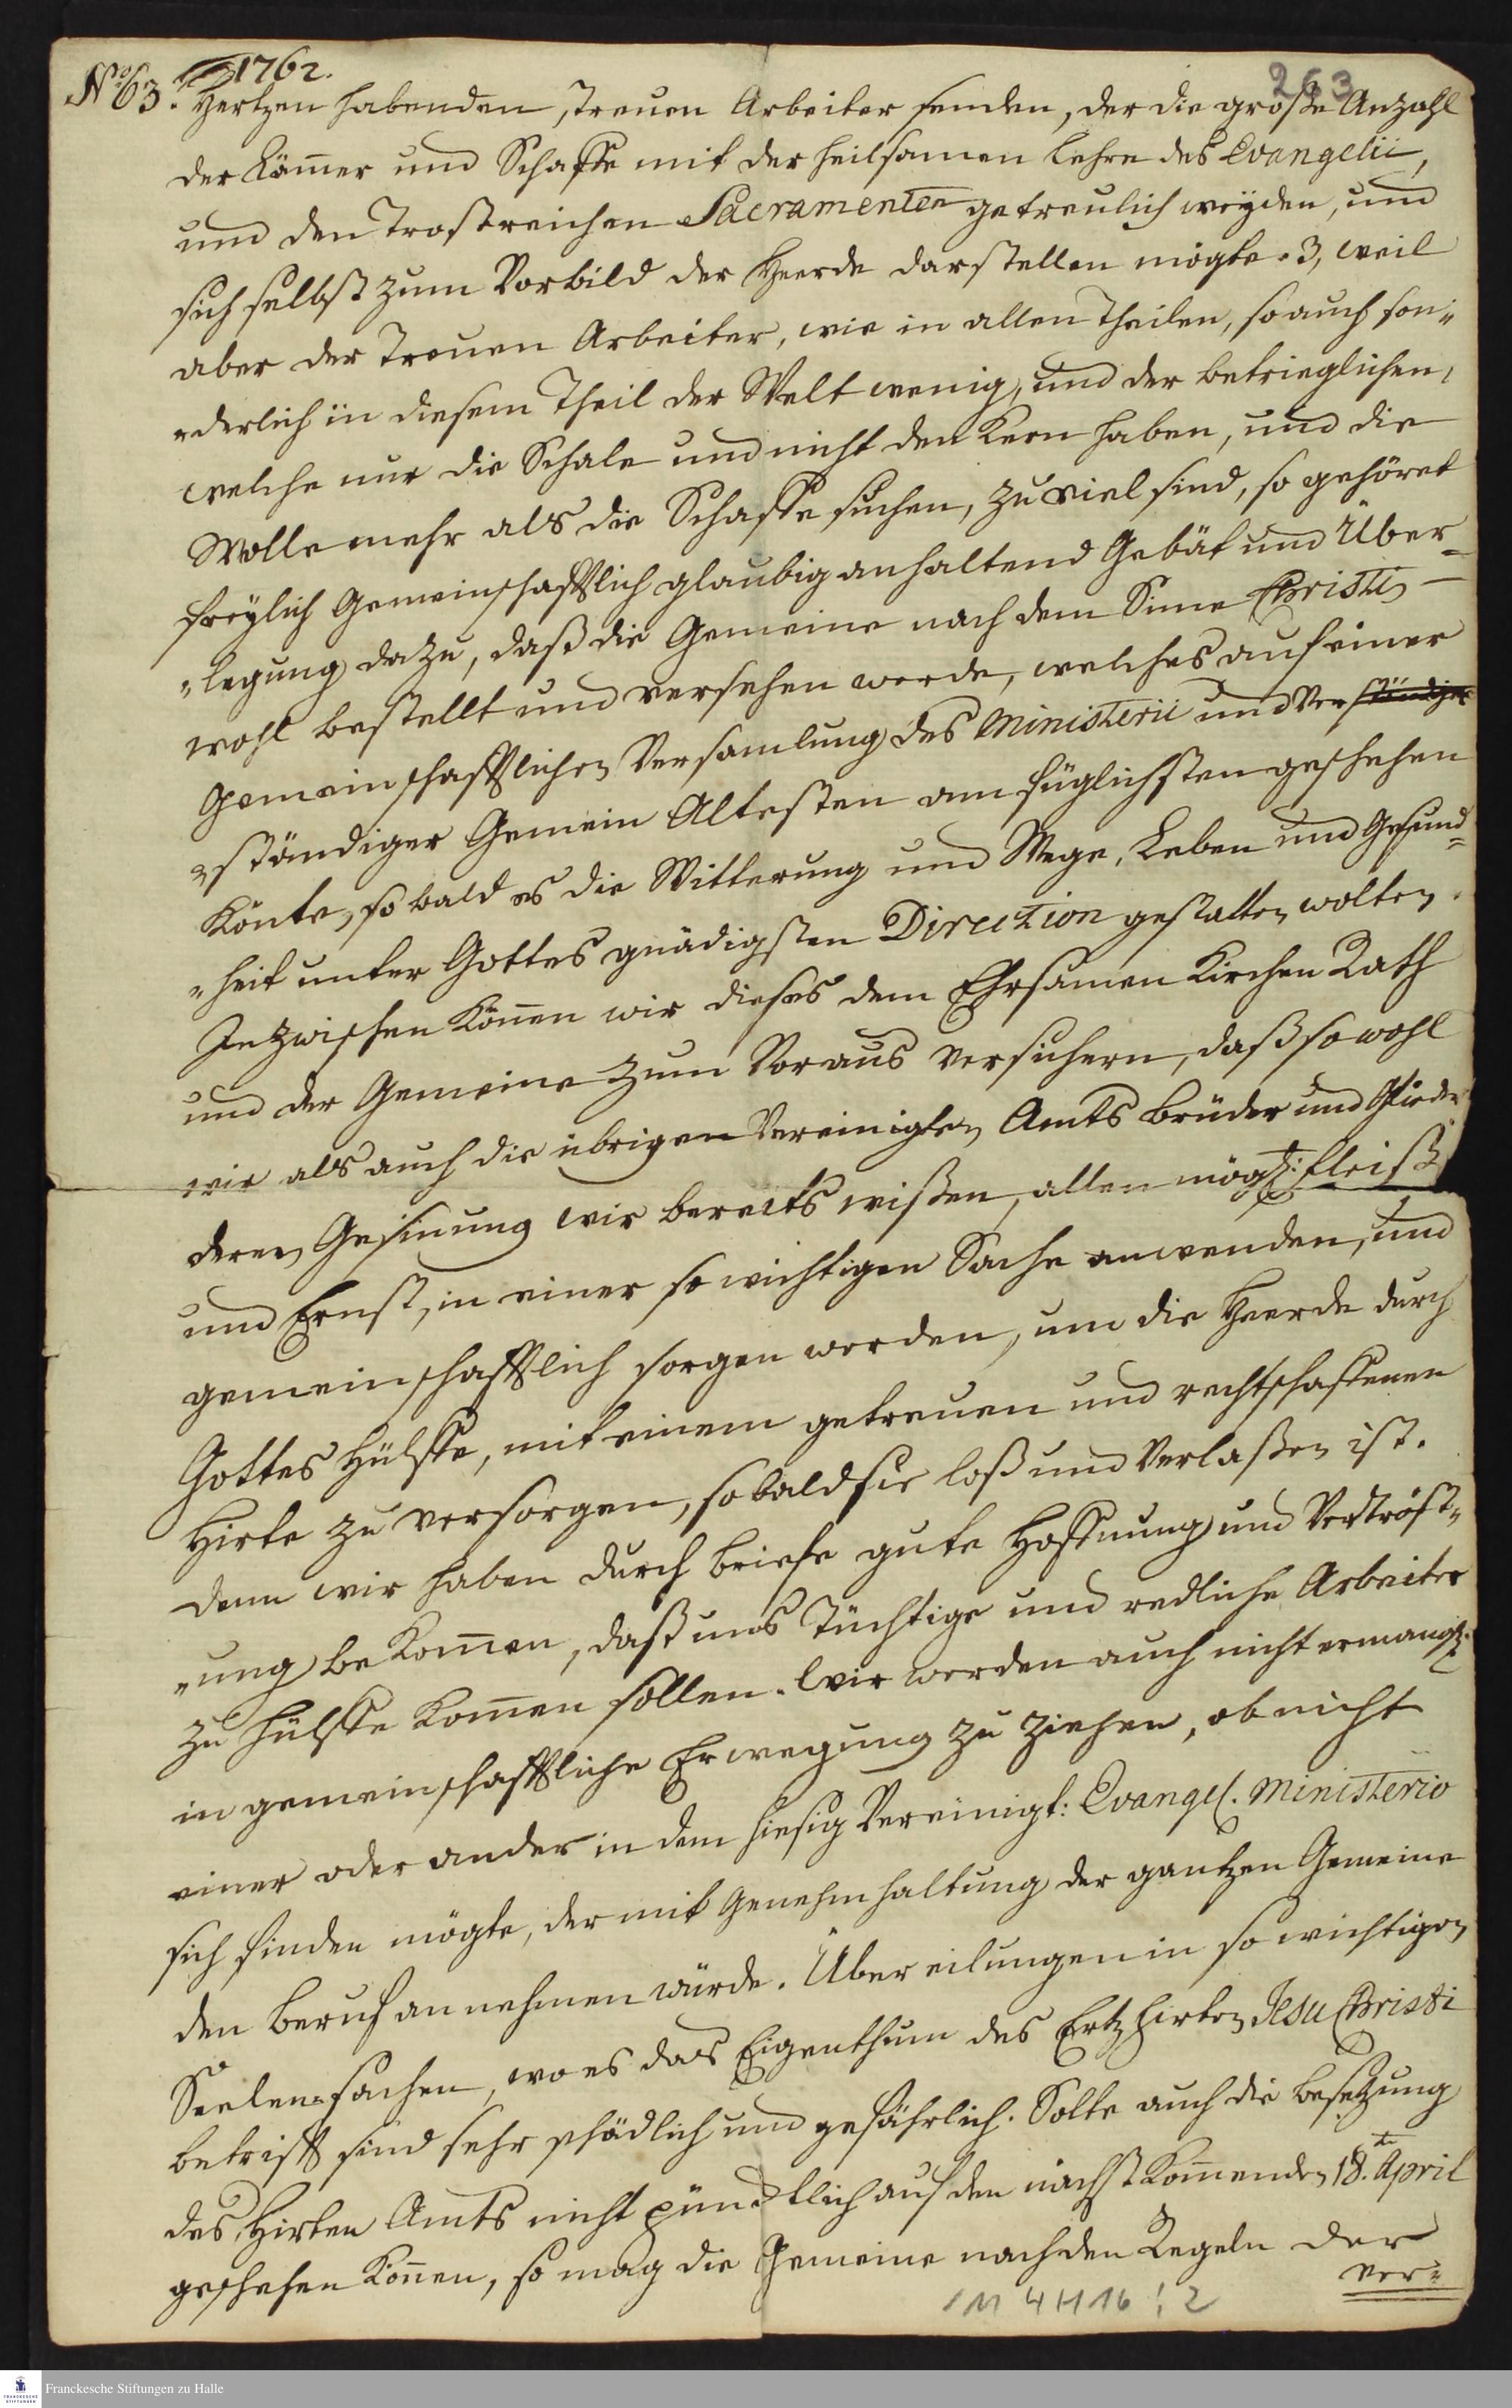 No 63. 1762.
263
Hertzen habenden, treuen Arbeiter senden, der die große Anzahl
der Läm̅er und Schaffe mit der heilsamen Lehre des Evangelii,
und den Trostreichen Sacramenten getreulich weyden, und
sich selbst zum Vorbild der Heerde darstellen mögte. 3, weil
aber der treuen Arbeiter, wie in allen Theilen, so auch son„
„derlich in diesem Theil der Welt wenig, und der betrieglichen,
welche nur die Schale und nicht den Kern haben, und die
Wolle mehr als die Schaffe suchen, zu viel sind, so gehöret
freylich Gemeinschafftlich glaubig anhaltend Gebät und Über-
„legung dazu, daß die Gemeine nach dem Sinne Christi
wohl bestellt und versehen werde, welches auf einer
Gemeinschafftlichen Versamlung des Ministerii und Verständiger
„ständiger Gemein Altesten am füglichsten geschehen
Könte, so bald es die Witterung und Wege, Leben und Gesund=
„heit unter Gottes gnädigsten Direction gestatten wolten.
Inzwischen Kön̅en wir dieses dem Ehrsamen Kirchen Rath
und der Gemeine zum Voraus versichern, daß sowohl
wir als auch die übrigen Vereinigten Amts Brüder und Glieder
deren Gesinnung wir bereits wißen, allen mögl: Fleiß
und Ernst, in einer so wichtigen Sache anwenden, und
gemeinschafftlich sorgen werden, um die Heerde durch
Gottes Hülffe, mit einem getreuen und rechtschaffenen
Hirte zu versorgen, so bald sie loß und Verlaßen ist.
denn wir haben durch briefe gute Hoffnung und Vertröst„
„ung bekom̅en, daß uns Tüchtige und redliche Arbeiter
zu Hülffe kom̅en sollen. Wir werden auch nicht ermangl:
in gemeinschafftliche Erwegung zu ziehen, ob nicht
einer oder ander in dem hiesig Vereinigt: Evangel. Ministerio
sich finden mögte, der mit Genehmhaltung der gantzen Gemeine
den Beruf annehmen würde. Übereilungen in so wichtigen
Seelen sachen, wo es das Eigenthum des Ertzhirten Jesu Christi
betrifft sind sehr schädlich und gefährlich. Solte auch die besetzung
des Hirten Amts nicht pünctlich auf den nächst kom̅enden 18.te April
geschehen kön̅en, so mag die Gemeine nach den Regeln der
ver=
1M 4H16 : 2
Franckesche Stiftungen zu Halle